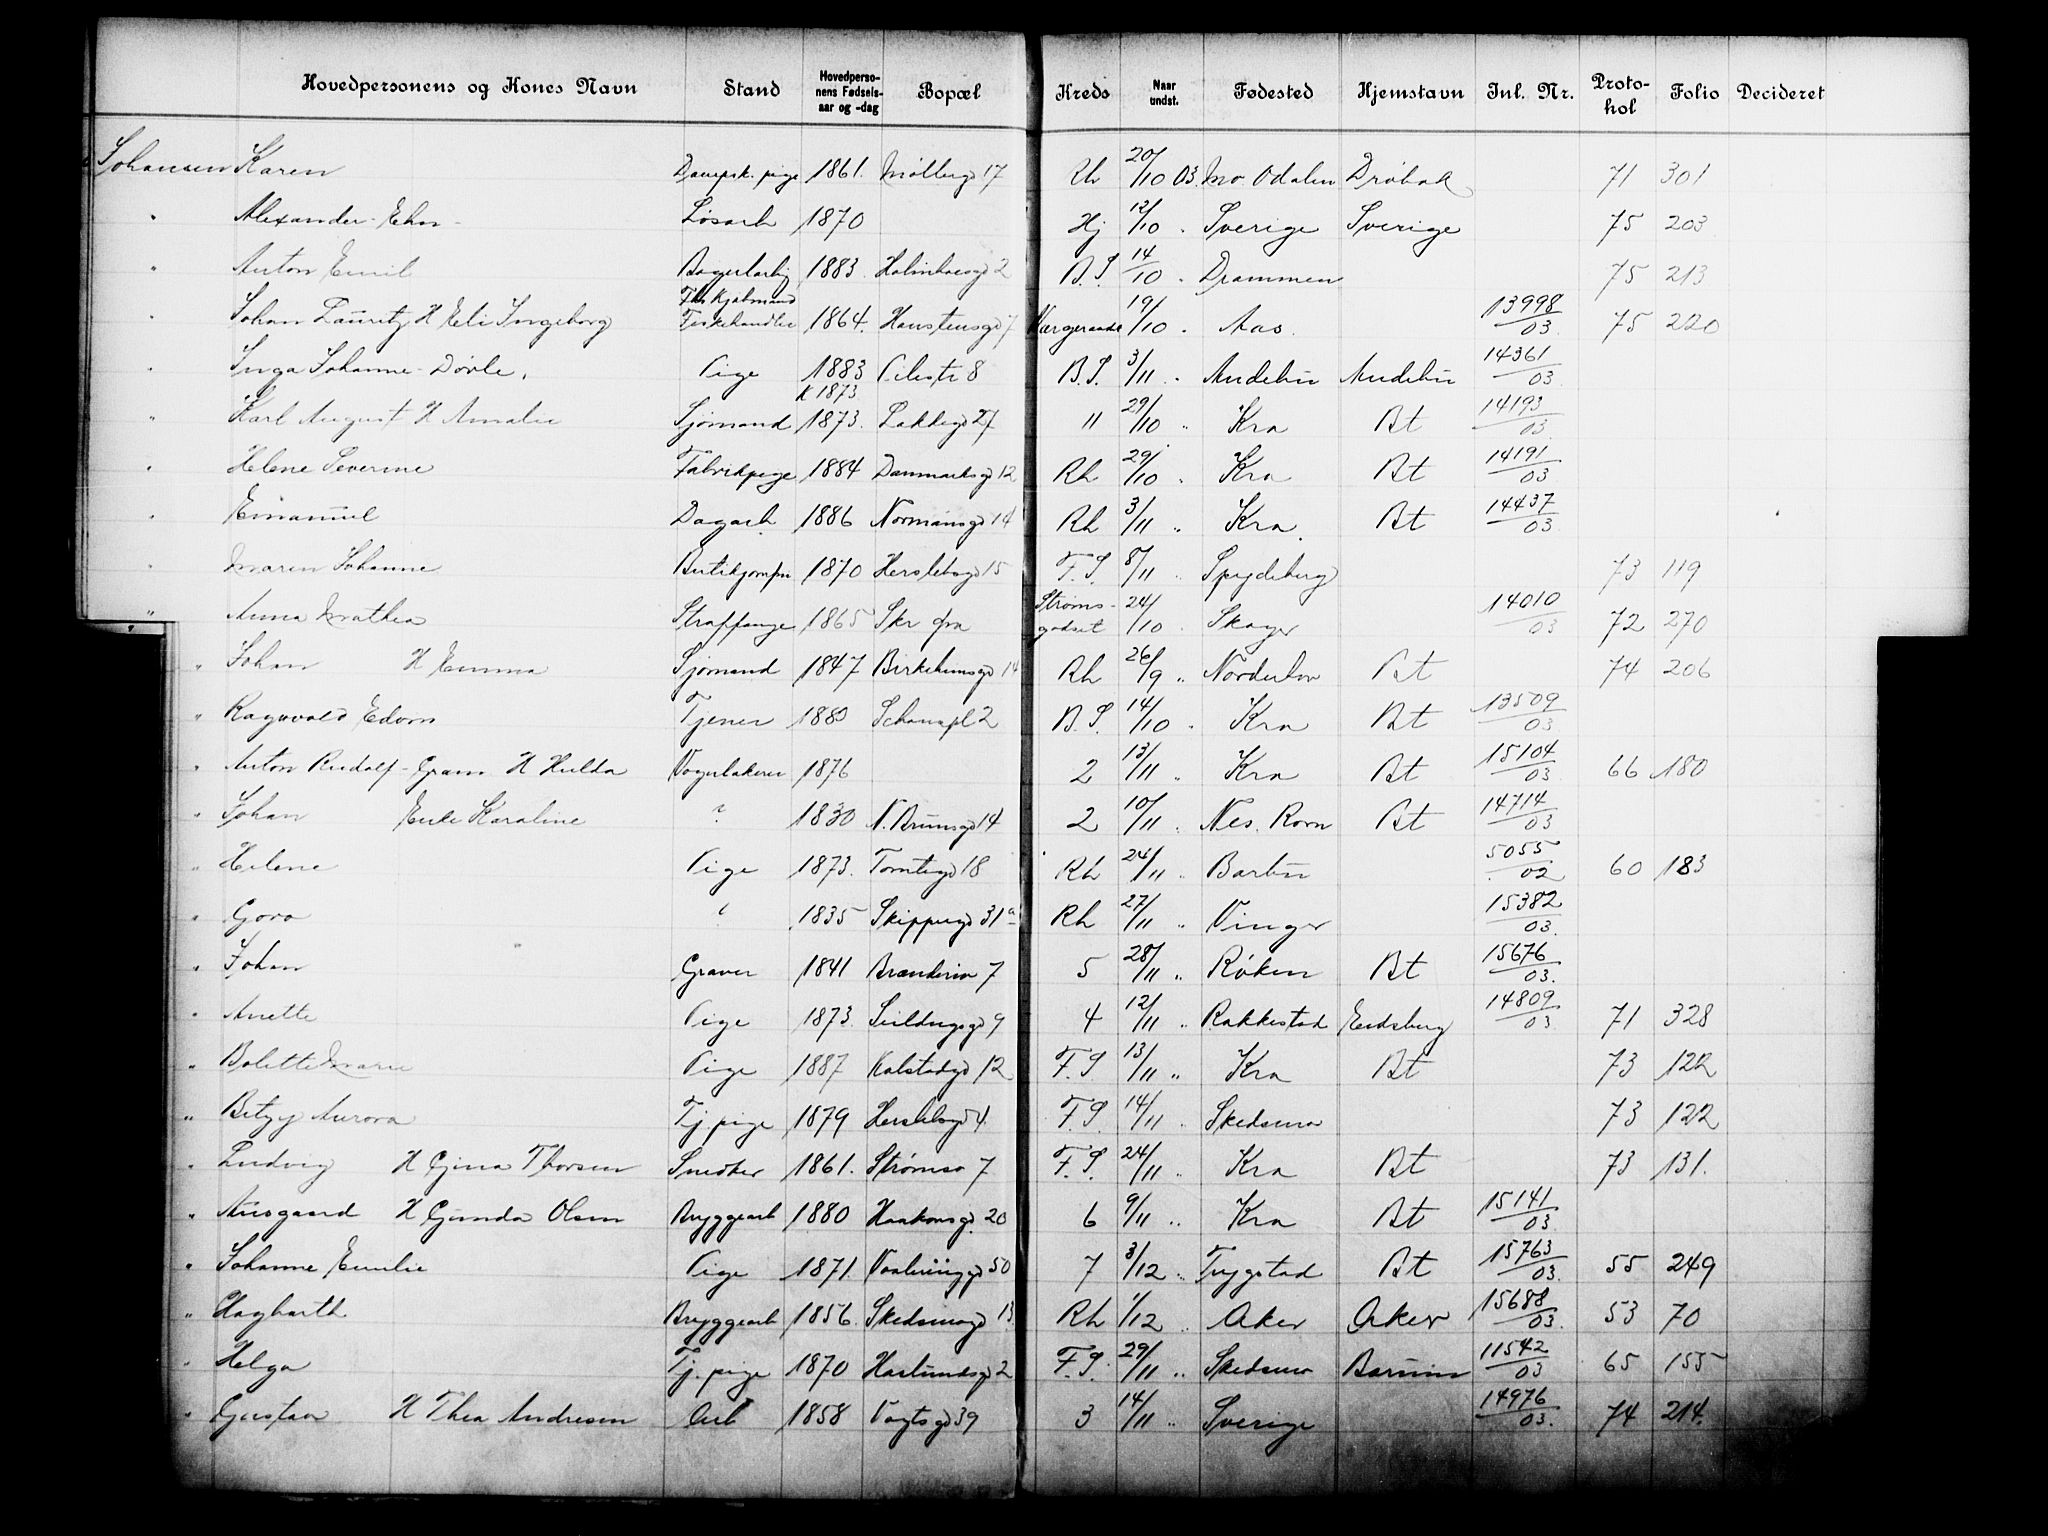 Hovedpersonens og Kones Navn Stand Hovedpersonens Fødselsaar og -dag Bopæl Kreds Naar undst. Fødested Hjemstavn Inl. Nr. Protokol Folio Decideret
Johansen Karen Dampsk. pige 1861. Møllergd 17 Rh 20/10 03. No. Odalen Drøbak 71 301
" Alexander - Ehn - Løsarb 1870 Hj 12/10 " Sverige Sverige 75 203
" Anton Emil 1883 2 B.S. 14/10 " Drammen 75 213
" Johan Lauritz H Eli Ingeborg Fiskehandler 1864. Haustensgd 7 19/10 " Aas. 13998/03 75 220
" Inga Johanne - Dørle. Pige 1883 Pilestr 8 B.S. 3/11 " Andebu Andebu 14361/03
" Karl August H Amalie Sjømand K 1873 1873. Lakkegd 27 " 29/10 " Kra Bt 14193/03
" Helene Severine Fabrikpige 1884 Danmarksgd 12 Rh 29/10 " Kra Bt 14191/03
" Emanuel Dagarb. 1886 Normansgd 14 Rh 3/11 " Kra. Bt 14437/03
" Maren Johanne Butikjomfru 1870 Herslebsgd 15 F.S. 8/11 " Spydeberg 73 119
" Anna Mathea Straffange 1865 Strømsgodset 24/10 " 14010/03 72 270
" Johan H Emma Sjømand 1847 Birkelunsgd 14 Rh 26/9 " Norderhov Bt 74 206
" Ragnvald Edvin Tjener 1883 Schouspl 2 B.S. 14/10 " Kra Bt 13509/03
" Anton Rudolf - Gram H Hulda 1876 2 13/11 " Kra Bt 15104/03 66 180
" Johan Enke Karoline ? 1830 N. Brunsgd 14 2 10/11 " Nes. Rom Bt 14714/03
" Helene Pige 1873. Tomtegd 18 Rh 24/11 " Barbu 5055/02 60 183
" Goro 1835 Skippergd 31 a Rh 27/11 " Vinger 15382/03.
" Johan Graver 1841 7 5 28/11 " Røken Bt 15676/03.
" Anette Pige 1873. 9 4 12/11 " Rakkestad Eidsberg 14809/03 71 328
" Bolette Marie Pige 1887 Kalstadgd 12 F.S. 13/11 " Kra Bt 73 122
" Betzy Aurora Tj pige 1879 Herslebsgd 4. F.S. 14/11 " Skedsmo 73 122
" Ludvig H Gjina Thorsen Snedker 1861. Strømsv 7 F.S. 24/11 " Kra Bt 73 131.
" Ausgaard H Gunda Olsen Bryggearb 1880 Haakonsgd. 20 6 9/11 " Kra Bt 15141/03.
" Johanne Emilie Pige 1871. Vaaleringgd 50 7 3/12 " Trygstad Bt 15763/03. 55 249
" Hagbarth Bryggearb 1856. Skedsmogd 13. Rh 1/12 " Aker Aker 15688/03. 53 70
" Helga Tj. pige 1870 Haslundsgd 2 F.S. 29/11 " Skedsmo Bærum 11542/03 65 155
" Gustav H Thea Andresen Arb 1858 Vogtsgd 39 3 14/11 " Sverige 14976/03. 74 214.